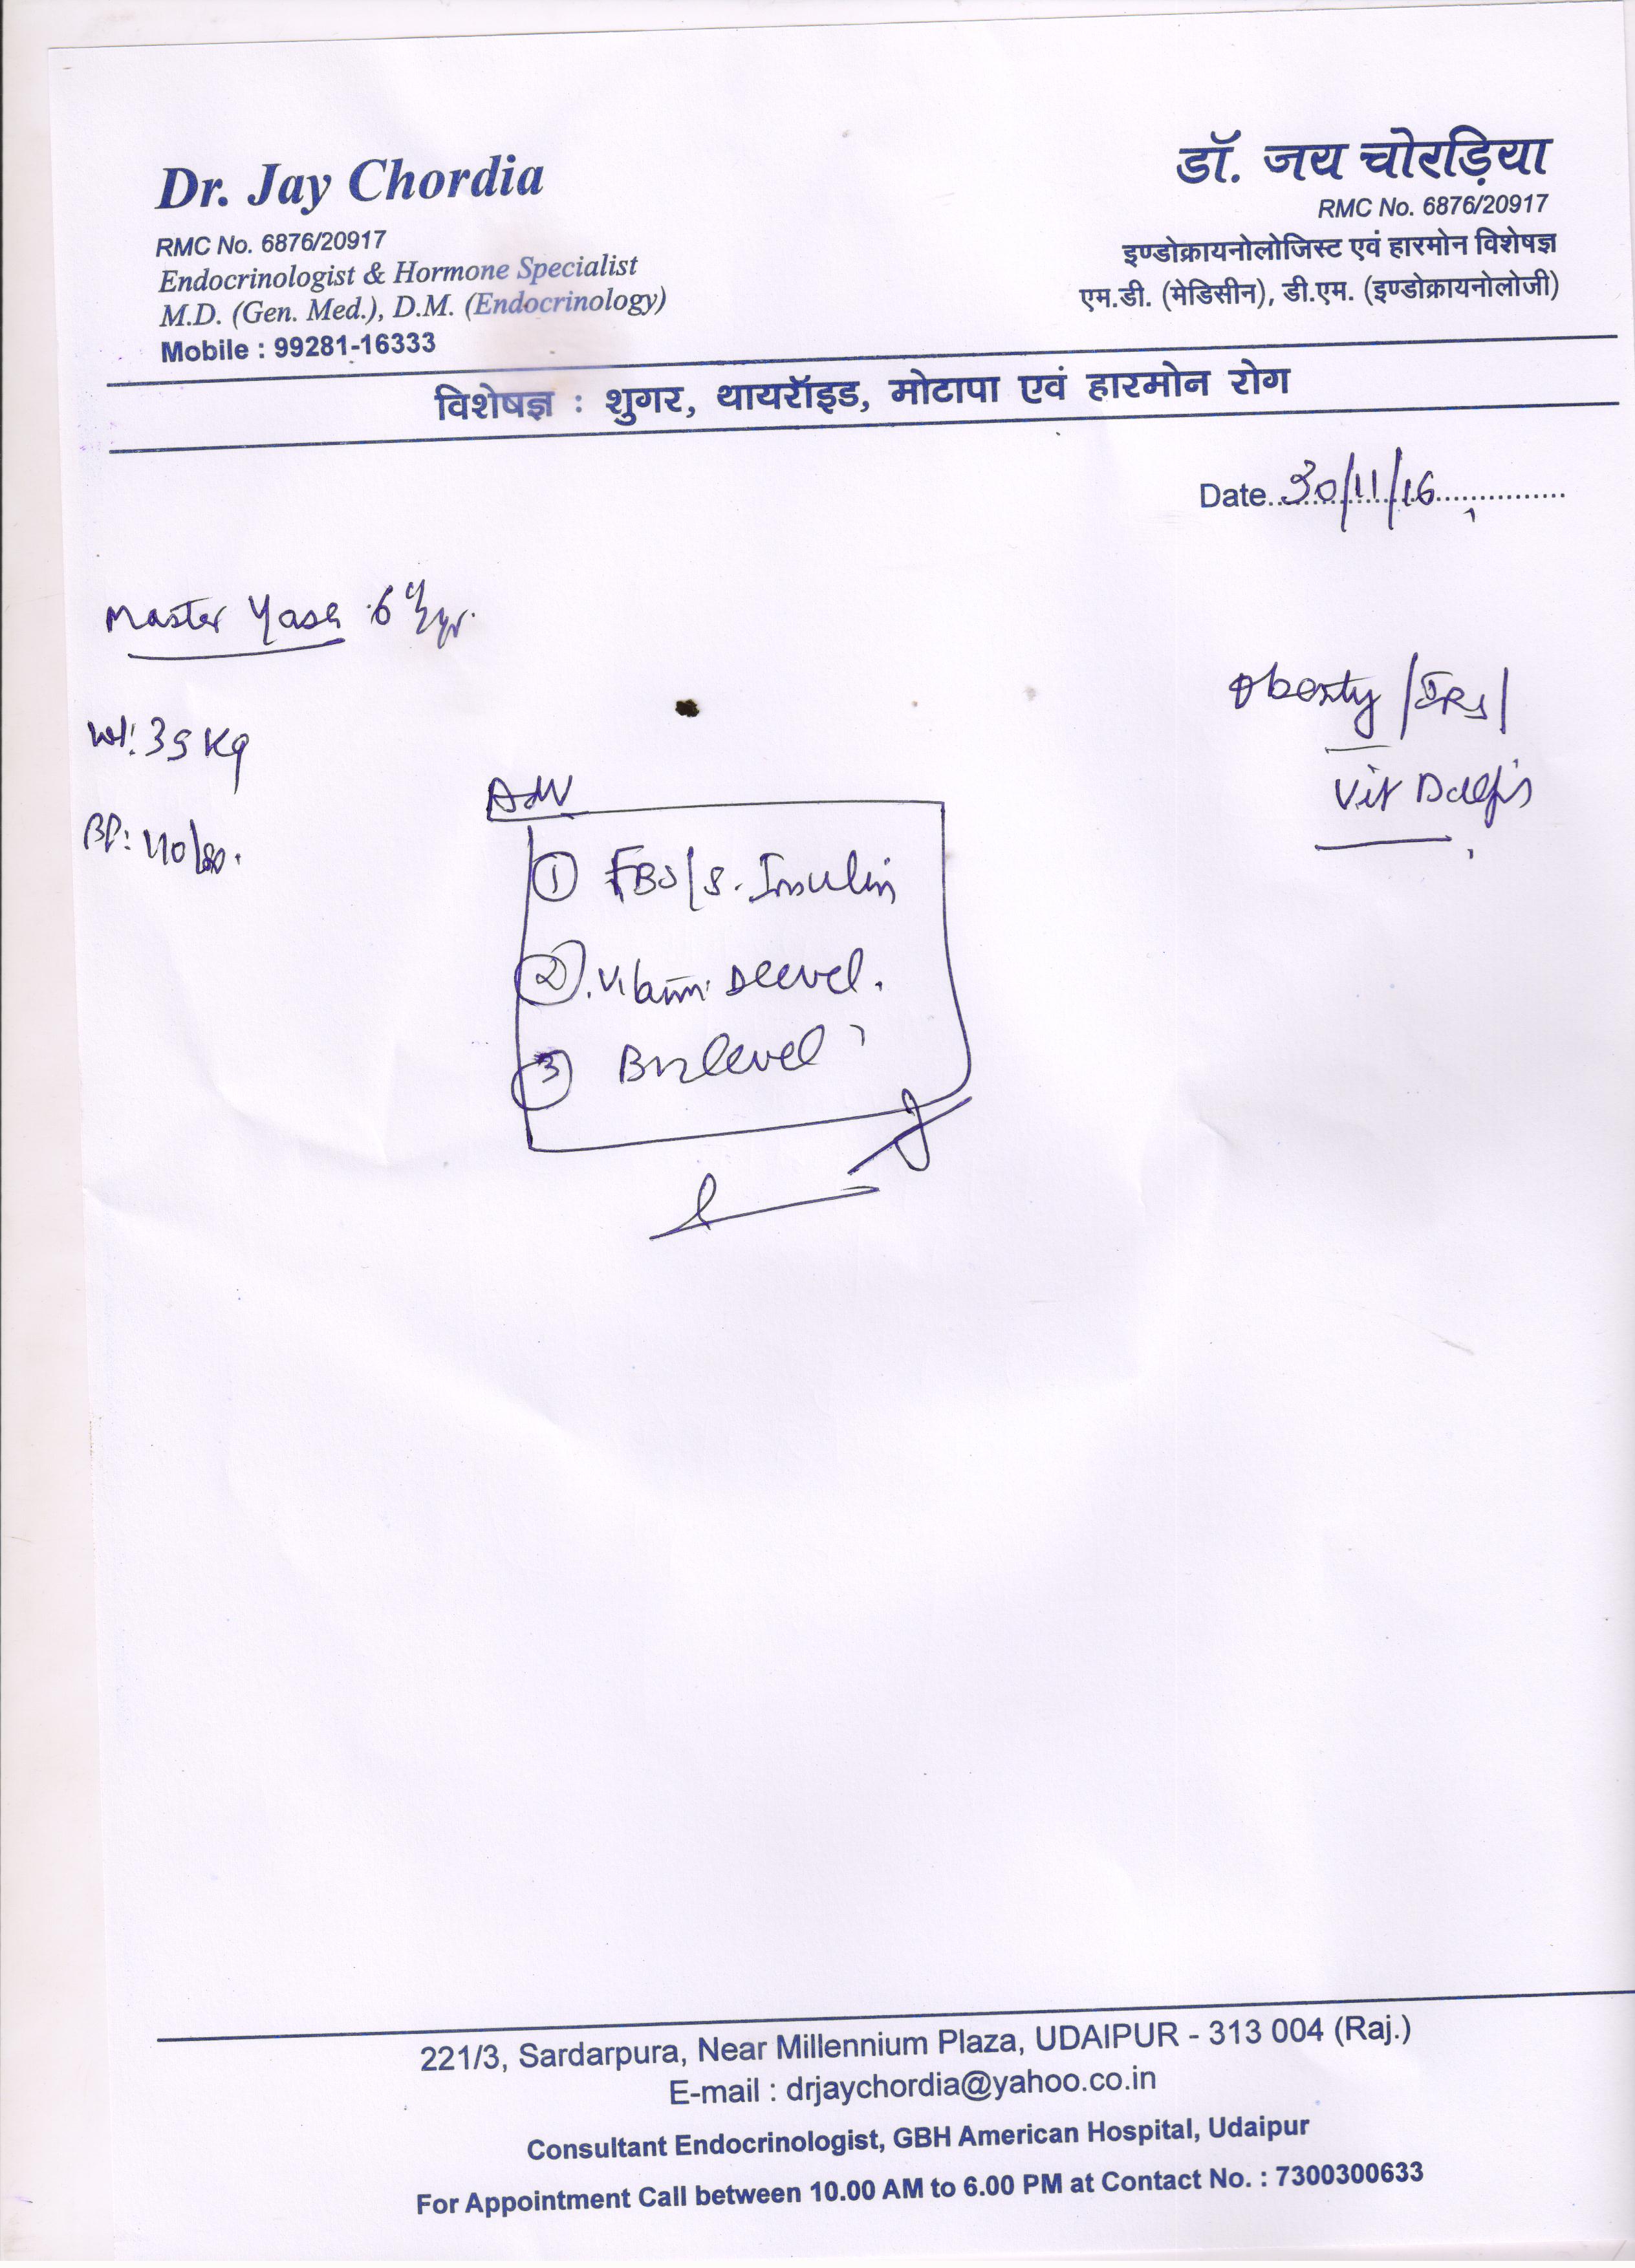 Dr. Jay Chordia
RMC No. 6876/20917
Endocrinologist & Hormone Specialist
M.D. (Gen. Med.), D.M. (Endocrinology)
Mobile : 99281-16333
डॉ. जय चोरड़िया
RMC No. 6876/20917
इण्डोक्रायनोलोजिस्ट एवं हारमोन विशेषज्ञ
एम.डी. (मेडिसीन), डी.एम. (इण्डोक्रायनोलोजी)
विशेषज्ञ : शुगर, थायरॉइड, मोटापा एवं हारमोन रोग
Date 30/11/16
Master Yash 6
Obesty /IRS/
Vit D
Wt: 35 Kg
BP: 110/80.
Adv
① FBS/S. Insulin
②. Vitamin D level.
③ B12 level
221/3, Sardarpura, Near Millennium Plaza, UDAIPUR - 313 004 (Raj.)
E-mail : drjaychordia@yahoo.co.in
Consultant Endocrinologist, GBH American Hospital, Udaipur
For Appointment Call between 10.00 AM to 6.00 PM at Contact No. : 7300300633